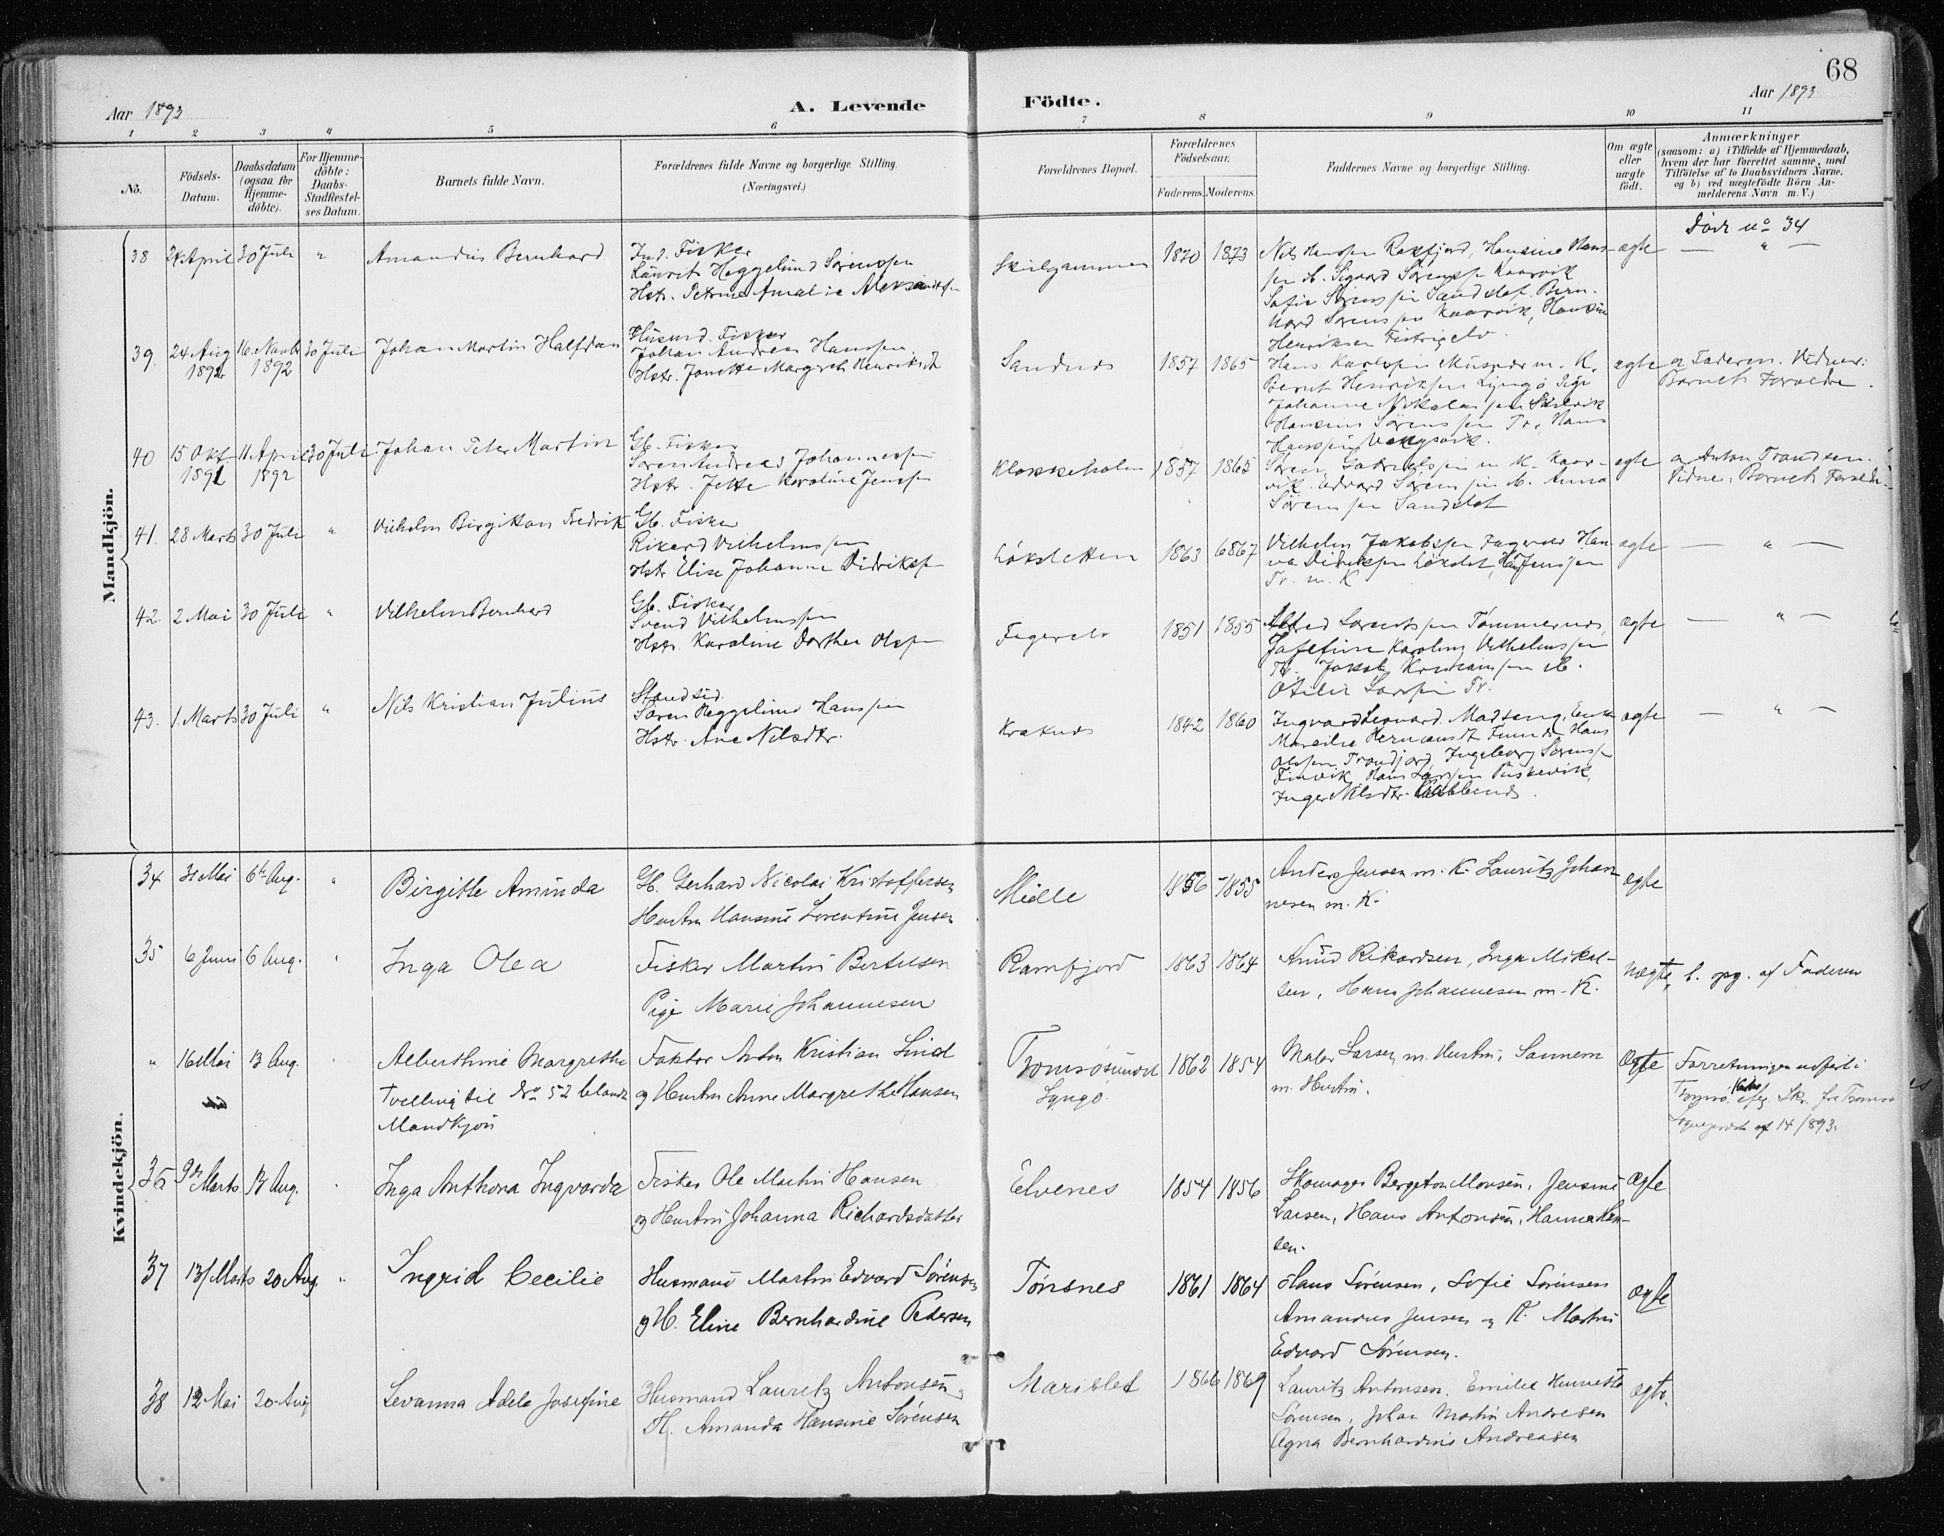 68
Aar 1893
A. Levende Födte.
Aar 1893
1 2 3 4 5 6 7 8 9 10 11
No.
Födsels-
Datum.
Daabsdatum
(ogsaa for
Hjemme-
döbte).
For Hjemme-
döbte:
Daabs-
Stadfæstel-
ses Datum.
Barnets fulde Navn.
Forældrenes fulde Navne og borgerlige Stilling.
(Næringsvei.)
Forældrenes Bopæl.
Forældrenes
Födselsaar.
Faderens. Moderens.
Faddernes Navne og borgerlige Stilling.
Om ægte
eller
uægte
födt.
Anmærkninger
(saasom: a) i Tilfælde af Hjemmedaab,
hvem der har forrettet samme, med
Tilföielse af to Daabsvidners Navne,
og b) ved uægtefödte Börn An-
melderens Navn m. V.)
Mandkjön.
38 24 April 30 Juli " Amandus Bernhard
Ind. Fisker
Laurits Heggelund Sørenssen
Hstr. Petrine Amalie
1870 1873
Nils Hanssen Rakfjord, Hansine Hans-
sen Sigvard Sørenssen Kaarvik
Sofie Sørenssen Sandslet. Bern-
hard Sørenssen Kaarvik, Hansine
Henriksen
ægte
Død no 34
— " —
39. 24 Aug 1892 16 Novbr 1892 30 Juli Johan Martin Halfdan
Husmd. Fisker
Johan Andreas Hanssen
Hstr. Jonette Margreth Henriksdt
Sandnes
1857 1865
Hans Karlssen Musvær m. K.
Bernt Henrikssen Lyngø Pige
Johanne Nikolaissen
Hansine Sørenssen Tr., Hans
Hanssen Vængsvik.
ægte
a Faderen. Vidner:
Barnets Forældre.
40 15 Okt 1891 11 April 1892 30 Juli Johan Peter Martin
Gb. Fisker
Søren Andreas Johannessen
Hstr. Jette Karoline Jenssen
Klokkeholm
1857 1865
Søren Gabrielssen m. K. Kaar-
vik. Edvard Sørenssen Anna
Sørenssen Sandslet
ægte
a Anton Trondsen.
Vidner: Barnets Foreldr.
41. 28 Marts 30 Juli " Vilhelm Birgithon Fredrik
Gb. Fisker
Rikard Vilhelmssen
Hstr Elise Johanne Didrikssen
Løksletten
1863 1867
Vilhelm Jakobssen Fagernes Han
na Didrikssen Løkslet, Hans Jenssen
Tr. m. K
ægte
— " —
42. 2 Mai 30 Juli " Vilhelm Bernhard
Gb. Fisker
Svend Vilhelmssen
Hstr. Karoline Dorthea Olssen
1851 1855
Alfred Lorentssen Tømmernes,
Josefine Karoline Vilhelmssen
Tr. Jakob
Otelie Larssen Tr.
ægte
— " —
43. 1 Marts 30 Juli " Nils Kristian Julius
Søren Heggelund Hanssen
Hstr. Ane Nilsdtr.
Kraknes
1842 1860
Ingvard Leonard Madsen, Enke
Hans
Olssen Trondjord, Ingeborg Sørenss
Finvik, Hans Larssen
Inger Nilsdtr.
ægte
— " —
Kvindekjön.
34 31 Mai 6te Aug. " Birgitte Aminda
Gb. Gerhard Nicolai Kristoffersen
Hustru Hansine Lorentine Jensen
Mielle
1856 1855
Anders Jensen m. K. Lauritz Johan
nesen m. K.
ægte
35 6 Juni 6 Aug. " Inga Olea
Fisker Martin Bertusen
Pige Marie Johannesen
Ramfjord
1863 1864
Knud Rikardsen, Inga Mikal-
sen, Hans Johannesen m. K.
uægte,
b. opg. af Faderen
" 16 Mai 13 Aug. Alberthine Margrethe
Tvelling til No 52 blandt
Mandkjøn
Faktor Anton Kristian Lind
og Hustru Anne Margrethe Hansen
Tromsøsund
Lyngø.
1862 1854
Maler Larsen m. Hustru, Sannem
m. Hustru.
Ægte
Forretningen udført i
Tromsø Kirke efter Skr. fra Tromsø
Sognepræst af 14/1893.
36 9de Marts 13 Aug. Inga Anthona Ingvarda
Fisker Ole Martin Hansen
og Hustru Johanna Richardsdatter
Elvenes
1854 1856
Skomager Bergeton Monsen, Jensine
Larsen, Hans Antonsen, Hanna Han-
sen.
Ægte
37 13/Marts 20 Aug. " Ingrid Cecilie
Husmand Martin Edvard Sørensen
og H. Eline Bernhardine Pedersen
Tønsnes
1861 1864
Hans Sørensen, Sofie Sørensen
Amandus Jensen og K. Martin
Edvard Sørensen.
Ægte
38 12 Mai 20 Aug Levanna Adele Josefine
Husmand Lauritz Antonsen og
H. Amanda Hansine Sørensen
Marislet
1866 1869
Lauritz Antonsen. Emilie
Sørensen, Johan Martin Andresen
Agna Bernhardine Andreasen
ægte.